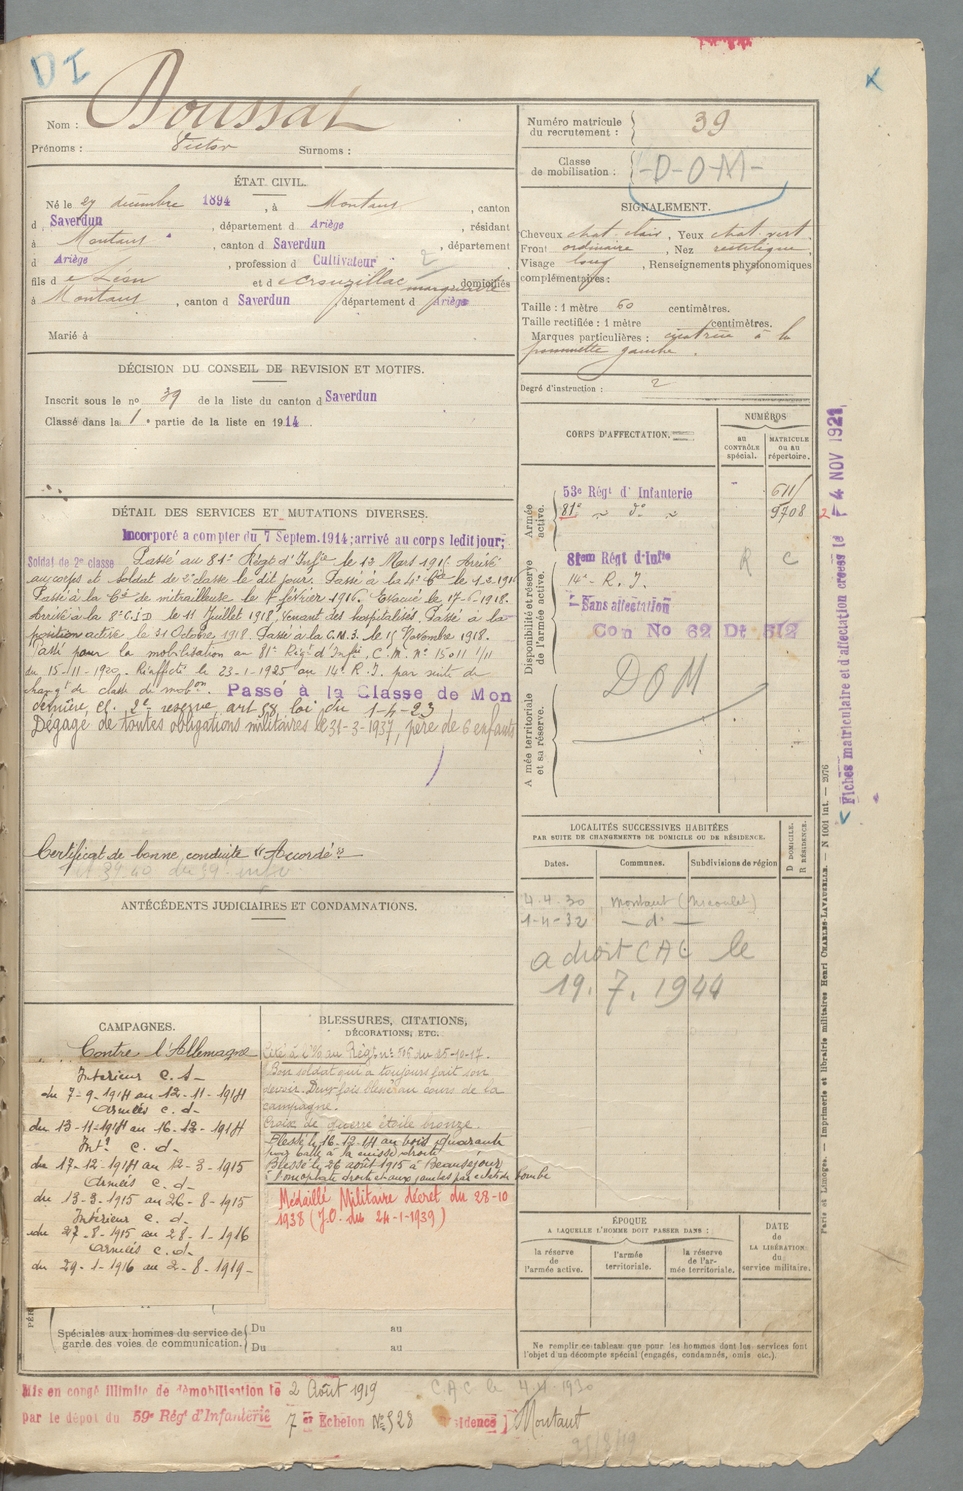 D I
Nom : Doussat
Prénoms : Victor Surnoms :
ÉTAT CIVIL.
Né le 27 décembre 1894, à Montaut, canton
d Saverdun, département d Ariège, résidant
à Montaut, canton d Saverdun, département
d Ariège, profession d Cultivateur 2
fils d e Léon et d e Crouzillac marguerite domiciliés
à Montaut, canton d Saverdun, département d Ariège
Marié à
DÉCISION DU CONSEIL DE REVISION ET MOTIFS.
Inscrit sous le no 39 de la liste du canton d Saverdun
Classé dans la 1e partie de la liste en 1914
DÉTAIL DES SERVICES ET MUTATIONS DIVERSES.
Incorporé a compter du 7 Septem. 1914; arrivé au corps ledit jour;
Soldat de 2e classe Passé au 81e Régt d'Infie le 13 Mars 1915. Arrivé
au corps et soldat de 2e classe le dit jour. Passé à la 4e Cie le 1.2.1916
Passé à la Cie de mitrailleuse le 1er février 1916. Evacué le 17-6-1918.
Arrivé à la 8e C.I.D le 11 Juillet 1918, venant des hospitalisés. Passé à la
position active le 31 Octobre 1918. Passé à la C.M.3. le 15 Novembre 1918.
Passé pour la mobilisation au 81e Régt d'Infie, C.M. No 15011 1/11
du 15-11-1920. Réaffecté le 23-1-1925 au 14e R.I. par suite de
changt de classe de mobon. Passé à la Classe de Mon
dernière, cl. 2e reserve, art 58 loi du 1-4-23
Dégagé de toutes obligations militaires le 31-3-1937, père de 6 enfants
Certificat de bonne conduite "Accordé"
ANTÉCÉDENTS JUDICIAIRES ET CONDAMNATIONS.
CAMPAGNES.
Contre l'Allemagne
Intérieur C. S-
du 7-9-1914 au 12-11-1914
Armées c. d-
du 13-11-1914 au 16-12-1914
Intr c. d-
du 17-12-1914 au 12-3-1915
Armées c. d-
du 13-3-1915 au 26-8-1915
Intérieur c. d-
du 27-8-1915 au 28-1-1916
Armées c. d-
du 29-1-1916 au 2-8-1919-
BLESSURES, CITATIONS,
DÉCORATIONS, ETC.
Cité à l'O au Régt no 515 du 25-10-17.
Bon soldat qui a toujours fait son
devoir. Deux fois blessé au cours de la
campagne.
Croix de guerre étoile bronze.
Blessé le 16-12-14 au bois quarante
par balle à la cuisse droite
Blessé le 26 août 1915 à Beauséjour
à l'omoplate droite et aux jambes par éclats de bombe
Médaillé Militaire décret du 28-10
1938 (J.O. du 24-1-1939)
Spéciales aux hommes du service de garde des voies de communication.
Du au
Du au
Mis en congé illimité de démobilisation le 2 Août 1919
par le dépôt du 59e Régt d'Infanterie 7 er Echelon No 528 Montaut
C A C le 4-4-1930
Numéro matricule
du recrutement : 39
Classe
de mobilisation : -D-O-M-
SIGNALEMENT.
Cheveux chat. clair, Yeux chat. vert,
Front ordinaire, Nez rectiligne,
Visage long, Renseignements physionomiques
complémentaires :
Taille : 1 mètre 60 centimètres.
Taille rectifiée : 1 mètre centimètres.
Marques particulières : cicatrice à la
pommette gauche.
Degré d'instruction : 2
CORPS D'AFFECTATION.
NUMÉROS
au CONTRÔLE spécial.
MATRICULE OU AU répertoire.
Armée active.
53e Régt d'Infanterie 611
81e do 9708
Disponibilité et réserve de l'armée active.
81em Régt d'Infie R C
14e R. I.
Sans affectation
Con No 62 Dt 512
Armée territoriale et sa réserve.
DOM
Fiches matriculaire et d'affectation créées le 4 NOV 1921
LOCALITÉS SUCCESSIVES HABITÉES
PAR SUITE DE CHANGEMENTS DE DOMICILE OU DE RÉSIDENCE.
D DOMICILE.
R RÉSIDENCE.
Dates. Communes. Subdivisions de région
4.4.30 Montaut
1-4-32 -do-
a droit CAC le
19. 7. 1944
ÉPOQUE
A LAQUELLE L'HOMME DOIT PASSER DANS :
DATE de LA LIBÉRATION du service militaire.
la réserve de l'armée active.
l'armée territoriale.
la réserve de l'armée territoriale.
Ne remplir ce tableau que pour les hommes dont les services font
l'objet d'un décompte spécial (engagés, condamnés, omis, etc.).
Paris et Limoges. — Imprimerie et librairie militaires Henri CHARLES-LAVAUZELLE. — N 1001 int. — 2976